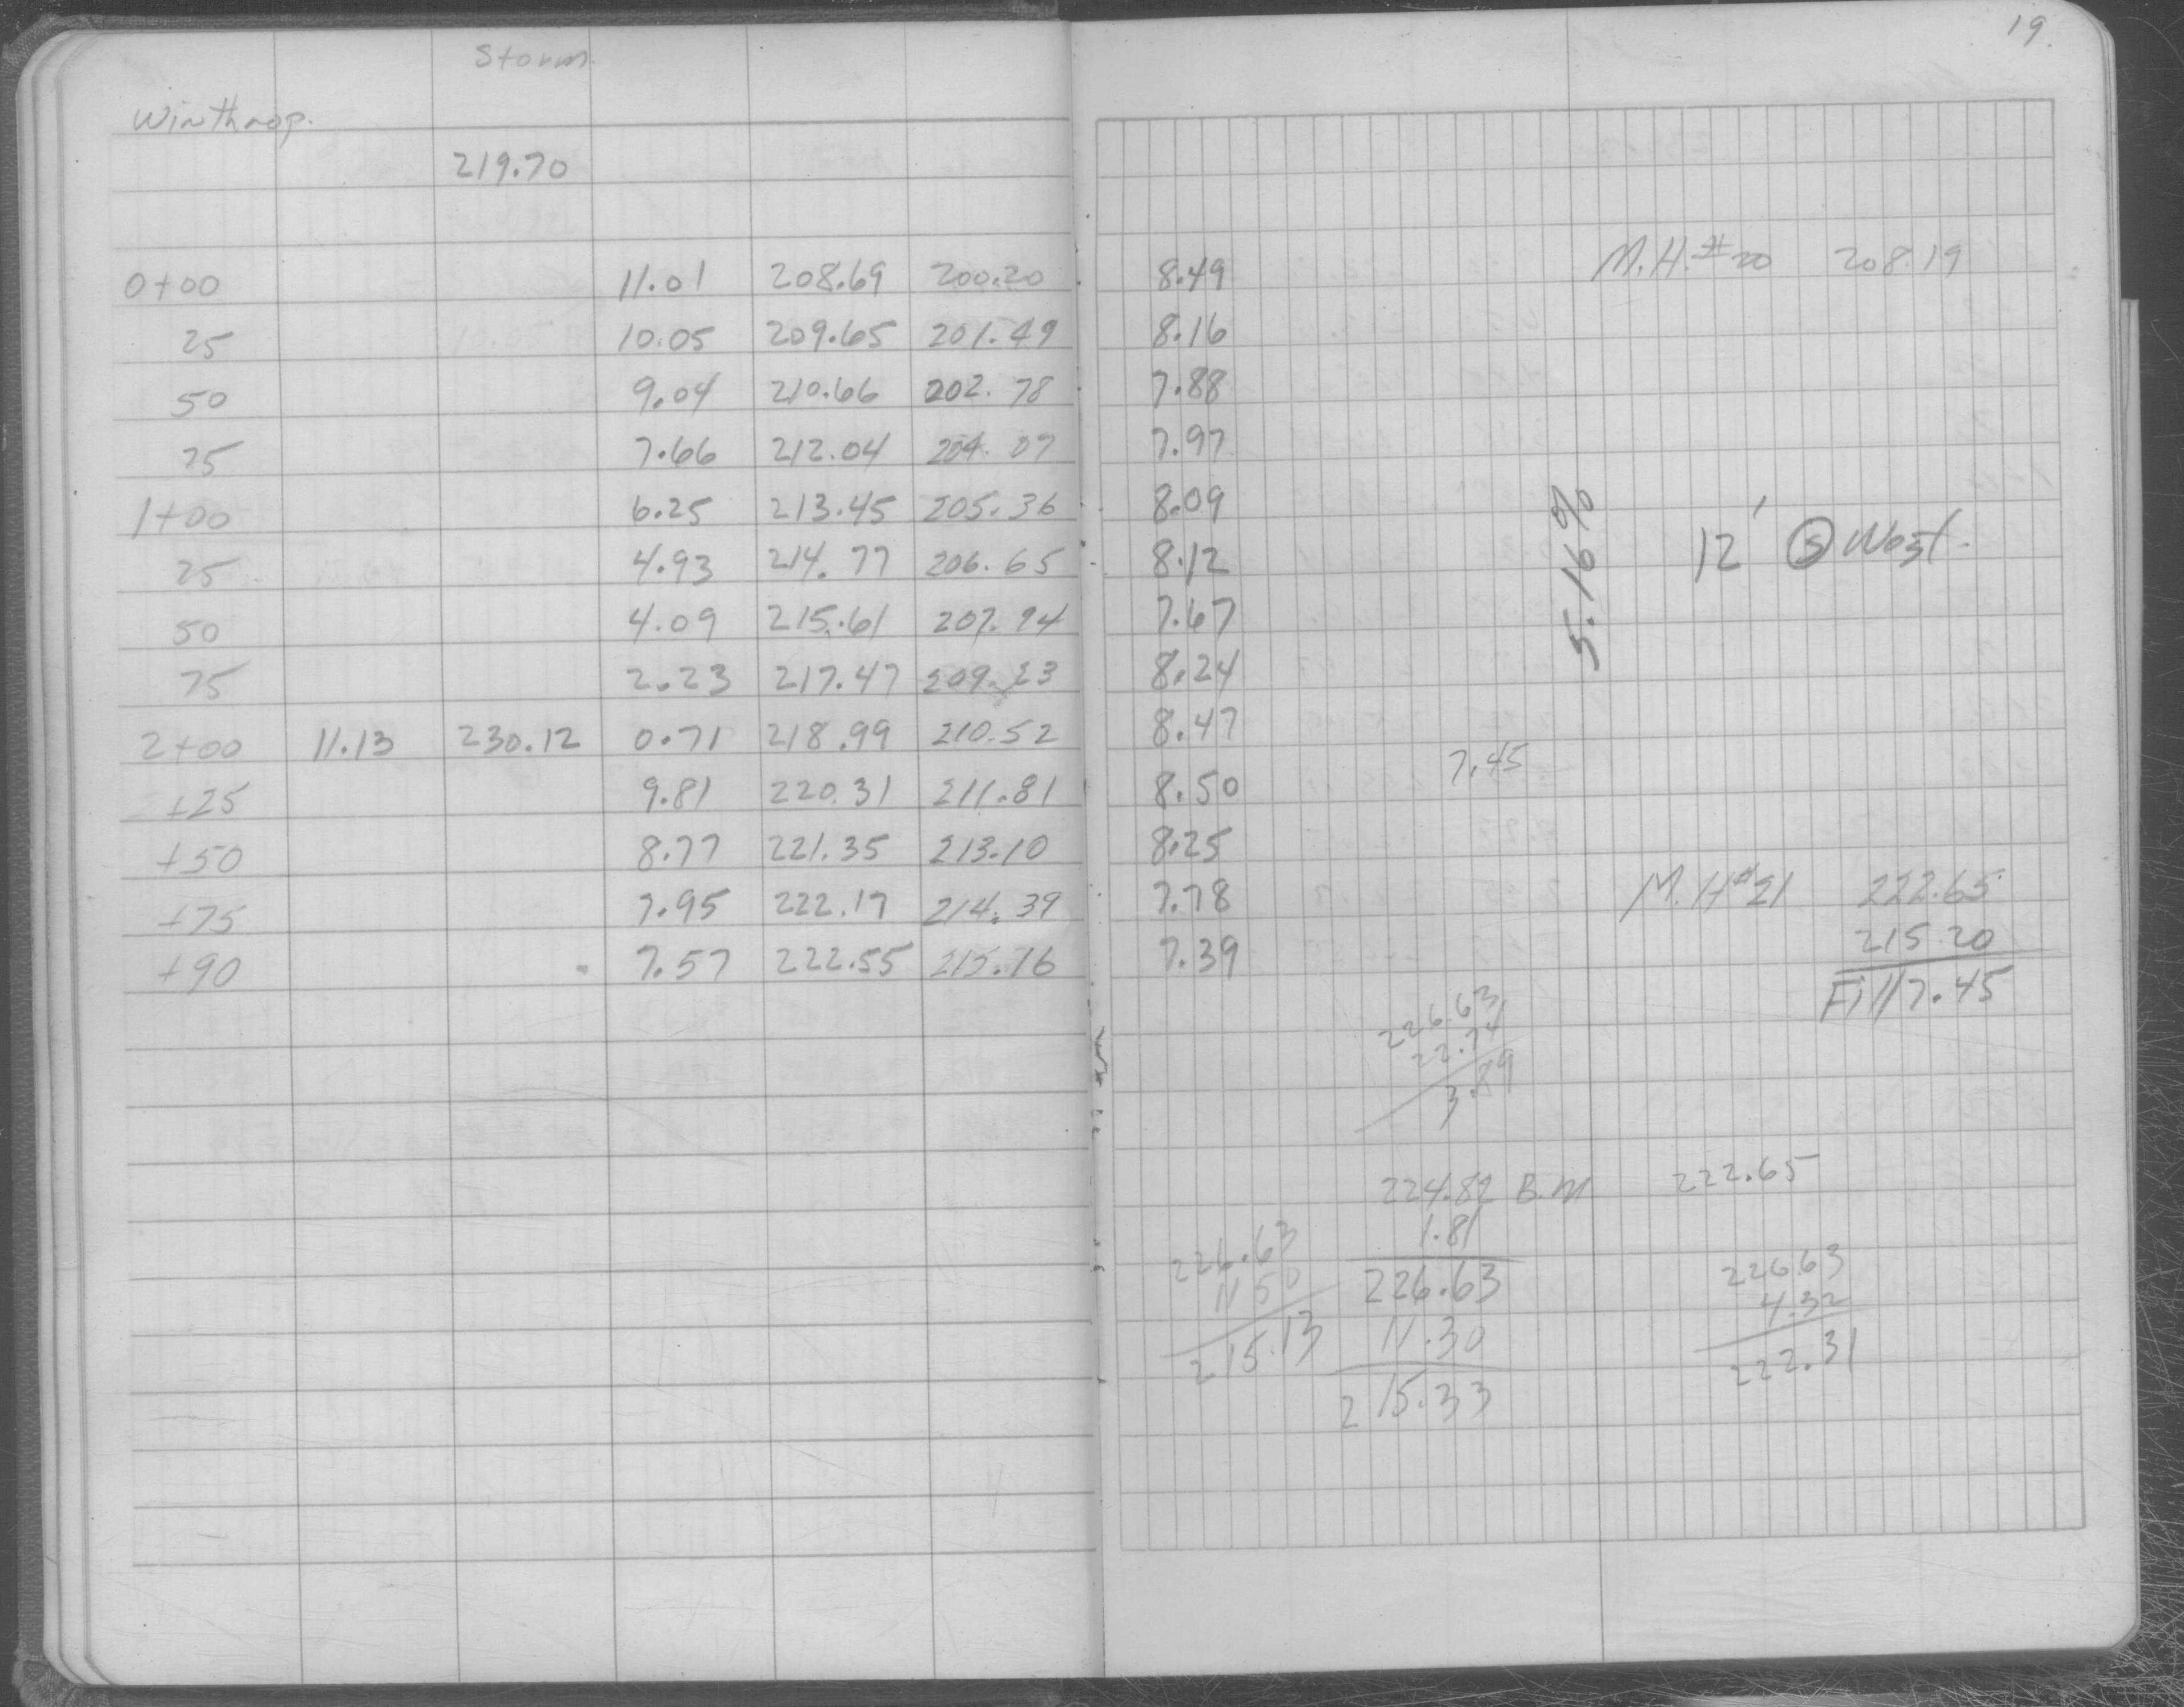 Storm.
Winthrop.
219.70
0+00 11.01 208.69 200.20
25 10.05 209.65 201.49
50 9.04 210.66 202.78
75 7.66 212.04 204.07
1+00 6.25 213.45 205.36
25 4.93 214.77 206.65
50 4.09 215.61 207.94
75 2.23 217.47 209.23
2+00 11.13 230.12 0.71 218.99 210.52
+25 9.81 220.31 211.81
+50 8.77 221.35 213.10
+75 7.95 222.17 214.39
+90 7.57 222.55 215.16
19.
8.49 M.H.#20 208.19
8.16
7.88
7.97
8.09
8.12 5.16% 12' Ⓢ West.
7.67
8.24
8.47
7.45
8.50
8.25
7.78 M.H#21 222.65
215.20
7.39 Fill 7.45
226.63
22.74
3.89
224.82 B.M 222.65
1.81
226.63
11.30
215.33
226.63
11 50
215.13
226.63
4.32
222.31